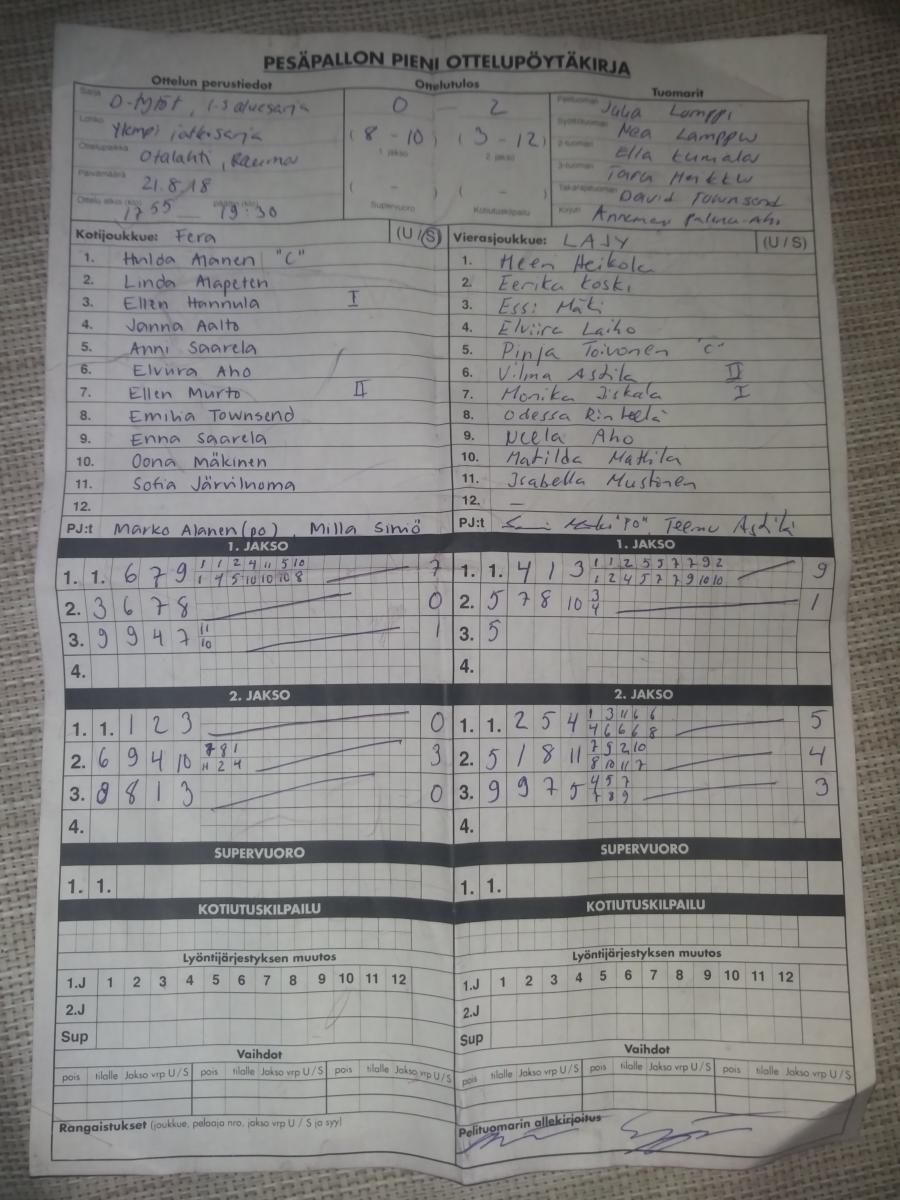 PESÄPALLON PIENI OTTELUPÖYTÄKIRJA
Ottelun perustiedot Ottelutulos Tuomarit
Sarja D-tytöt, 1-s aluesarja 0 - 2 Pelituomari Julia Lamppi
Lohko Ylempi jatkosarja (8 - 10) (3 - 12) Syöttötuomari Nea Lamppu
Ottelupaikka Otalahti, Rauma 1 jakso 2 jakso 2-tuomari Ella Kumala
Päivämäärä 21.8.18 ( - ) ( - ) 3-tuomari Tara
Ottelu alkoi (klo) 1755 päättyi (klo) 19:30 Supervuoro Kotiutuskilpailu Takarajatuomari David Townsend
Kirjuri Annemari
Kotijoukkue: Fera (U/S)
1. Hulda Alanen "C"
2. Linda
3. Ellen Hannula I
4. Janna Aalto
5. Anni Saarela
6. Elviira Aho
7. Ellen Murto II
8. Emilia Townsend
9. Enna Saarela
10. Oona Mäkinen
11. Sofia Järvilnoma
12.
PJ:t Marko Alanen (po), Milla Simö
Vierasjoukkue: LAJY (U/S)
1. Heikola
2. Eerika Koski
3. Essi Mäki
4. Elviira Laiho
5. Pinja Toivonen "C"
6. Vilma Astila II
7. Monika Iiskala I
8. Odessa Rinteelä
9. Neela Aho
10. Matilda Mattila
11. Isabella Mustonen
12. –
PJ:t "PO", Teemu Astila
1. JAKSO
1. 1. 6 7 9 1 1 2 4 11 5 10 7
1 4 5 10 10 10 8
2. 3 6 7 8 0
3. 9 9 4 7 11 1
10
4.
1. JAKSO
1. 1. 4 1 3 1 1 2 5 5 7 7 9 2 9
1 2 4 5 7 7 9 10 10
2. 5 7 8 10 3 1
4
3. 5
4.
2. JAKSO
1. 1. 1 2 3 0
2. 6 9 4 10 7 8 1 3
11 2 4
3. 8 8 1 3 0
4.
2. JAKSO
1. 1. 2 5 4 1 3 11 6 6 5
4 6 6 6 8
2. 5 1 8 11 7 9 2 10 4
8 10 11 7
3. 9 9 7 5 4 5 7 3
7 8 9
4.
SUPERVUORO
1. 1.
SUPERVUORO
1. 1.
KOTIUTUSKILPAILU
KOTIUTUSKILPAILU
Lyöntijärjestyksen muutos
1.J 1 2 3 4 5 6 7 8 9 10 11 12
2.J
Sup
Lyöntijärjestyksen muutos
1.J 1 2 3 4 5 6 7 8 9 10 11 12
2.J
Sup
Vaihdot
pois tilalle Jakso vrp U/S pois tilalle Jakso vrp U/S pois tilalle Jakso vrp U/S
Vaihdot
pois tilalle Jakso vrp U/S pois tilalle Jakso vrp U/S pois tilalle Jakso vrp U/S
Rangaistukset (joukkue, pelaaja nro, jakso vrp U / S ja syy)
Pelituomarin allekirjoitus